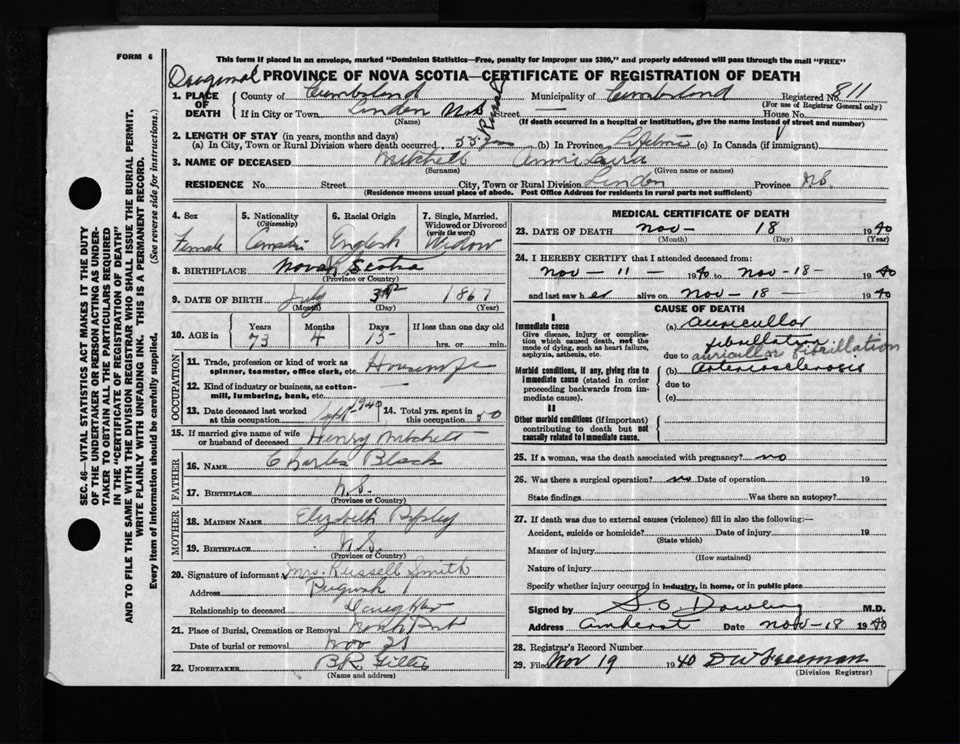 FORM 6
This form if placed in an envelope, marked "Dominion Statistics—Free, penalty for improper use $300," and properly addressed will pass through the mail "FREE"
PROVINCE OF NOVA SCOTIA—CERTIFICATE OF REGISTRATION OF DEATH
1. PLACE OF DEATH County of Cumberland Municipality of Cumberland Registered No. 811
(For use of Registrar General only)
If in City or Town Linden N.S. Rural Street — House No.
(Name) (If death occurred in a hospital or institution, give the name instead of street and number)
2. LENGTH OF STAY (in years, months and days)
(a) In City, Town or Rural Division where death occurred 55 yrs (b) In Province Lifetime (c) In Canada (if immigrant)
3. NAME OF DECEASED Mitchell Annie Laura
(Surname) (Given name or names)
RESIDENCE No. Street City, Town or Rural Division Linden Province N.S.
(Residence means usual place of abode. Post Office Address for residents in rural parts not sufficient)
4. Sex Female
5. Nationality (Citizenship)
6. Racial Origin English
7. Single, Married, Widowed or Divorced (write the word) Widow
8. BIRTHPLACE Nova Scotia
(Province or Country)
9. DATE OF BIRTH July 3rd 1867
(Month) (Day) (Year)
10. AGE in Years 73 Months 4 Days 15 If less than one day old hrs. or min.
OCCUPATION
11. Trade, profession or kind of work as spinner, teamster, office clerk, etc. Housewife
12. Kind of industry or business, as cotton-mill, lumbering, bank, etc. —
13. Date deceased last worked at this occupation Sept 1940 14. Total yrs. spent in this occupation 50
15. If married give name of wife or husband of deceased Henry Mitchell
FATHER
16. NAME Charles Black
17. BIRTHPLACE N.S.
(Province or Country)
MOTHER
18. MAIDEN NAME Elizabeth Ripley
19. BIRTHPLACE N.S.
(Province or Country)
20. Signature of informant Mrs. Russell Smith
Address Pugwash
Relationship to deceased Daughter
21. Place of Burial, Cremation or Removal North Port
Date of burial or removal Nov 20
22. UNDERTAKER B.R. Gillis
(Name and address)
MEDICAL CERTIFICATE OF DEATH
23. DATE OF DEATH Nov- 18 1940
(Month) (Day) (Year)
24. I HEREBY CERTIFY that I attended deceased from:
Nov - 11 - 1940 to Nov-18- 1940
and last saw her alive on Nov-18- 1940
CAUSE OF DEATH
I
Immediate cause
Give disease, injury or complication which caused death, not the mode of dying, such as heart failure, asphyxia, asthenia, etc.
(a) Auricular
fibrillation
due to auricular fibrillation
Morbid conditions, if any, giving rise to immediate cause (stated in order proceeding backwards from immediate cause).
(b) Arteriosclerosis
due to
(c)
II
Other morbid conditions (if important) contributing to death but not causally related to immediate cause.
25. If a woman, was the death associated with pregnancy? no
26. Was there a surgical operation? no Date of operation 19
State findings Was there an autopsy?
27. If death was due to external causes (violence) fill in also the following:—
Accident, suicide or homicide? Date of injury 19
(State which)
Manner of injury
(How sustained)
Nature of injury
Specify whether injury occurred in industry, in home, or in public place
Signed by S. O. Dowling M.D.
Address Amherst Date Nov-18 1940
28. Registrar's Record Number
29. Filed Nov 19 1940 D W Freeman
(Division Registrar)
SEC. 46—VITAL STATISTICS ACT MAKES IT THE DUTY
OF THE UNDERTAKER OR PERSON ACTING AS UNDER-
TAKER TO OBTAIN ALL THE PARTICULARS REQUIRED
IN THE "CERTIFICATE OF REGISTRATION OF DEATH"
AND TO FILE THE SAME WITH THE DIVISION REGISTRAR WHO SHALL ISSUE THE BURIAL PERMIT.
WRITE PLAINLY WITH UNFADING INK. THIS IS A PERMANENT RECORD.
Every item of information should be carefully supplied. (See reverse side for instructions.)